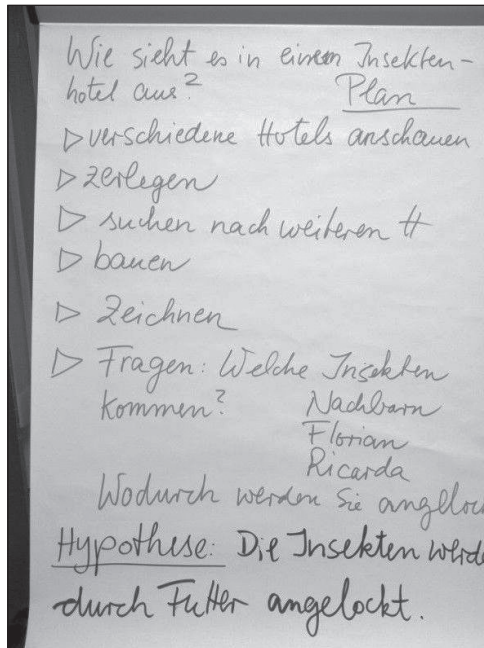 Wie sieht es in einem Insekten-
hotel aus? Plan
▷ verschiedene Hotels anschauen
▷ zerlegen
▷ suchen nach weiteren H
▷ bauen
▷ Zeichnen
▷ Fragen: Welche Insekten
kommen? Nachbarn
Florian
Ricarda
Wodurch werden Sie angelock
Hypothese: Die Insekten werde
durch Futter angelockt.